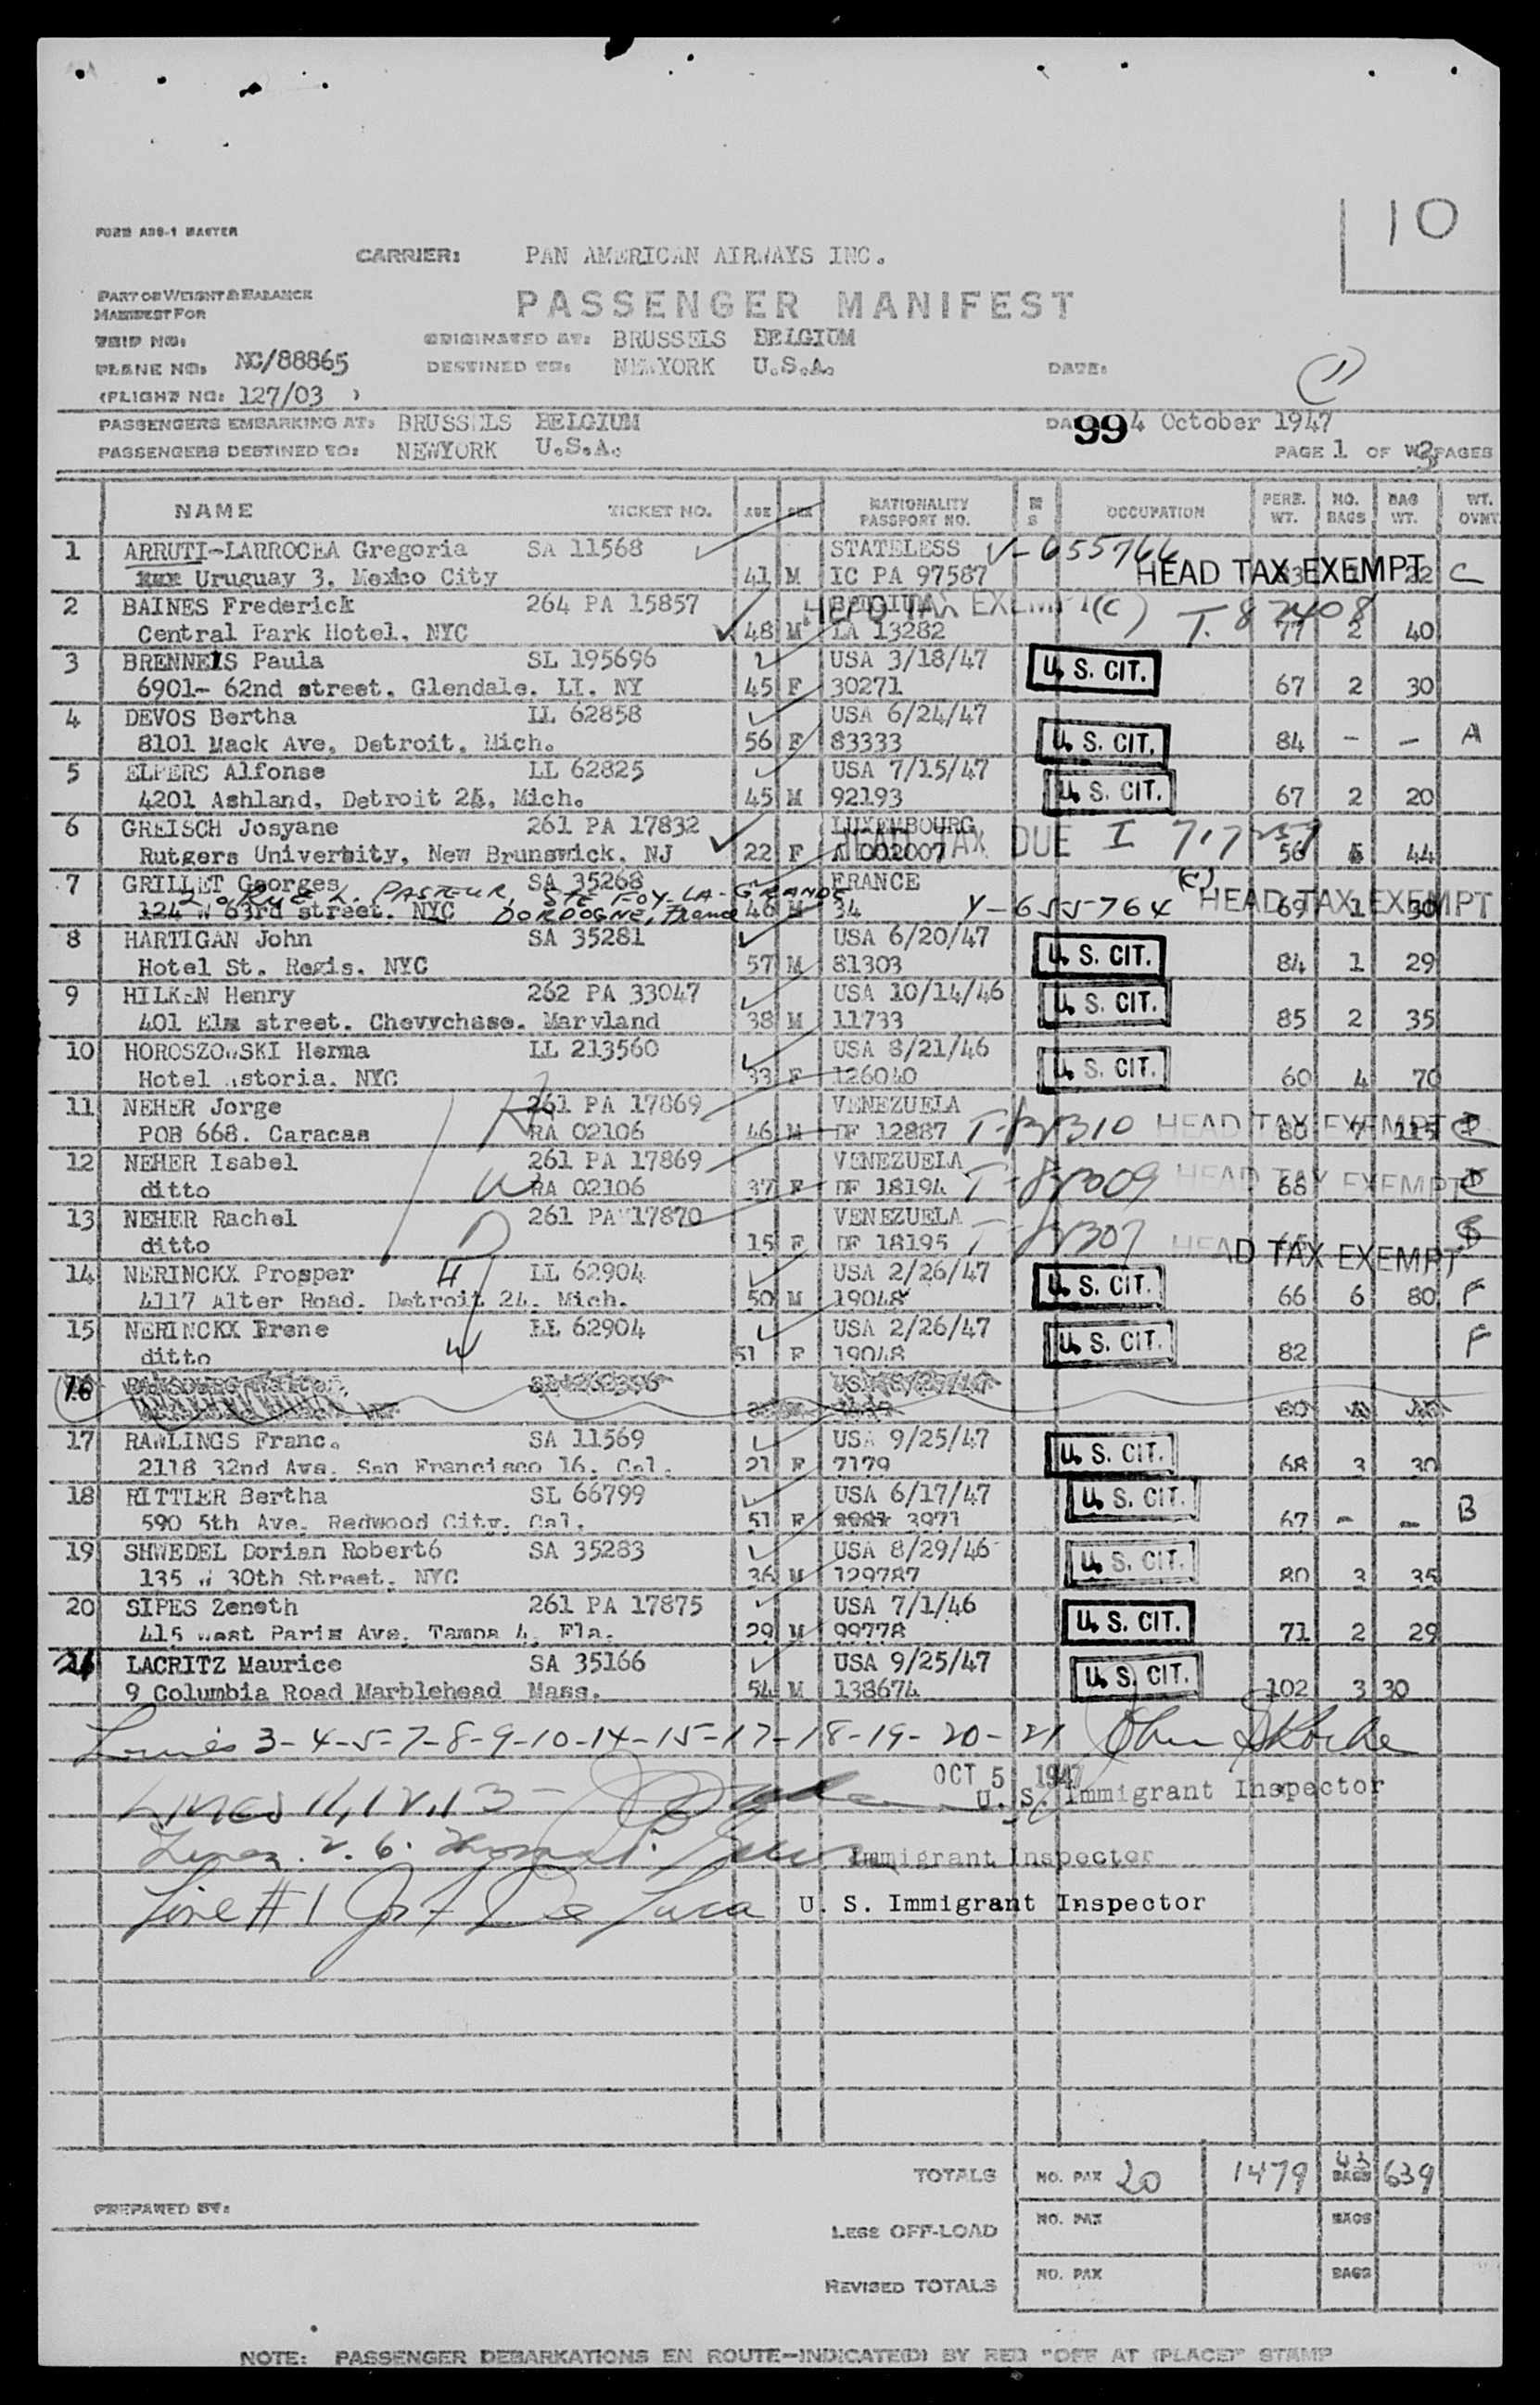 10
FORM ADS-1 MASTER
CARRIER: PAN AMERICAN AIRWAYS INC.
PART OF WEIGHT & BALANCE
MANIFEST FOR
PASSENGER MANIFEST
TRIP NO:
ORIGINATED AT: BRUSSELS BELGIUM
PLANE NO: NC/88865
DESTINED TO: NEWYORK U.S.A.
DATE:
(FLIGHT NO: 127/03 )
PASSENGERS EMBARKING AT: BRUSSELS BELGIUM
99 4 October 1947
PASSENGERS DESTINED TO: NEWYORK U.S.A.
PAGE 1 OF 3 PAGES
NAME TICKET NO. AGE SEX NATIONALITY PASSPORT NO. M S OCCUPATION PERS. WT. NO. BAGS BAG WT. WT. OVNT
1 ARRUTI-LARROCEA Gregoria SA 11568 STATELESS V-655766
Uruguay 3. Mexico City 41 M IC PA 97587 HEAD TAX EXEMPT 22 C
2 BAINES Frederick 264 PA 15857 BELGIUM HEAD TAX EXEMPT (C)
Central Park Hotel, NYC 48 M LA 13282 77 2 40
3 BRENNEIS Paula SL 195696 USA 3/18/47 U. S. CIT.
6901- 62nd street. Glendale. LI. NY 45 F 30271 67 2 30
4 DEVOS Bertha LL 62858 USA 6/24/47
8101 Mack Ave, Detroit, Mich. 56 F 83333 U. S. CIT. 84 - - A
5 ELPERS Alfonse LL 62825 USA 7/15/47
4201 Ashland, Detroit 24, Mich. 45 M 92193 U. S. CIT. 67 2 20
6 GREISCH Josyane 261 PA 17832 LUXEMBOURG HEAD TAX DUE I
Rutgers University, New Brunswick, NJ 22 F A 002007 56 44
7 GRILLET Georges SA 35268 FRANCE
RUE L. PASTEUR, STE FOY-LA-GRANDE
124 W 63rd street. NYC DORDOGNE, France 46 M 34 V-655764 (C) HEAD TAX EXEMPT 69 1
8 HARTIGAN John SA 35281 USA 6/20/47
Hotel St. Regis. NYC 57 M 81303 U. S. CIT. 84 1 29
9 HILKEN Henry 262 PA 33047 USA 10/14/46
401 Elm street. Chevychase. Maryland 38 M 11733 U. S. CIT. 85 2 35
10 HOROSZOWSKI Herma LL 213560 USA 8/21/46
Hotel Astoria. NYC 33 F 126040 U. S. CIT. 60 4 70
11 NEHER Jorge 261 PA 17869 VENEZUELA
POB 668. Caracas RA 02106 46 M DF 12887 HEAD TAX EXEMPT 80 7 115
12 NEHER Isabel 261 PA 17869 VENEZUELA
ditto W RA 02106 37 F DF 18194 HEAD TAX EXEMPT 68
13 NEHER Rachel 261 PA 17870 VENEZUELA
ditto 15 F DF 18195 HEAD TAX EXEMPT
14 NERINCKX Prosper H LL 62904 USA 2/26/47
4117 Alter Road. Detroit 24. Mich. 50 M 19048 U. S. CIT. 66 6 80 F
15 NERINCKX Irene LL 62904 USA 2/26/47
ditto W 51 F 19048 U. S. CIT. 82 F
16
17 RAWLINGS Franc. SA 11569 USA 9/25/47
2118 32nd Ave. San Francisco 16. Cal. 21 F 7179 U. S. CIT. 68 3 30
18 RITTLER Bertha SL 66799 USA 6/17/47
590 5th Ave. Redwood City. Cal. 51 F 3971 U. S. CIT. 67 - - B
19 SHWEDEL Dorian Robert6 SA 35283 USA 8/29/46
135 W 30th Street. NYC 36 M 129787 U. S. CIT. 80 3 35
20 SIPES Zeneth 261 PA 17875 USA 7/1/46
415 West Paris Ave. Tampa 4. Fla. 29 M 99778 U. S. CIT. 71 2 29
21 LACRITZ Maurice SA 35166 USA 9/25/47
9 Columbia Road Marblehead Mass. 54 M 138674 U. S. CIT. 102 3 30
3-4-5-7-8-9-10-14-15-17-18-19-20-21
OCT 5 1947
Lines 11, 12, 13 U. S. Immigrant Inspector
Lines 2. 6. Immigrant Inspector
Line #1 De Luca U. S. Immigrant Inspector
TOTALS NO. PAX 20 1479 43 BAGS 639
PREPARED BY:
LESS OFF-LOAD NO. PAX BAGS
REVISED TOTALS NO. PAX BAGS
NOTE: PASSENGER DEBARKATIONS EN ROUTE-INDICATE(D) BY RED "OFF AT (PLACE)" STAMP